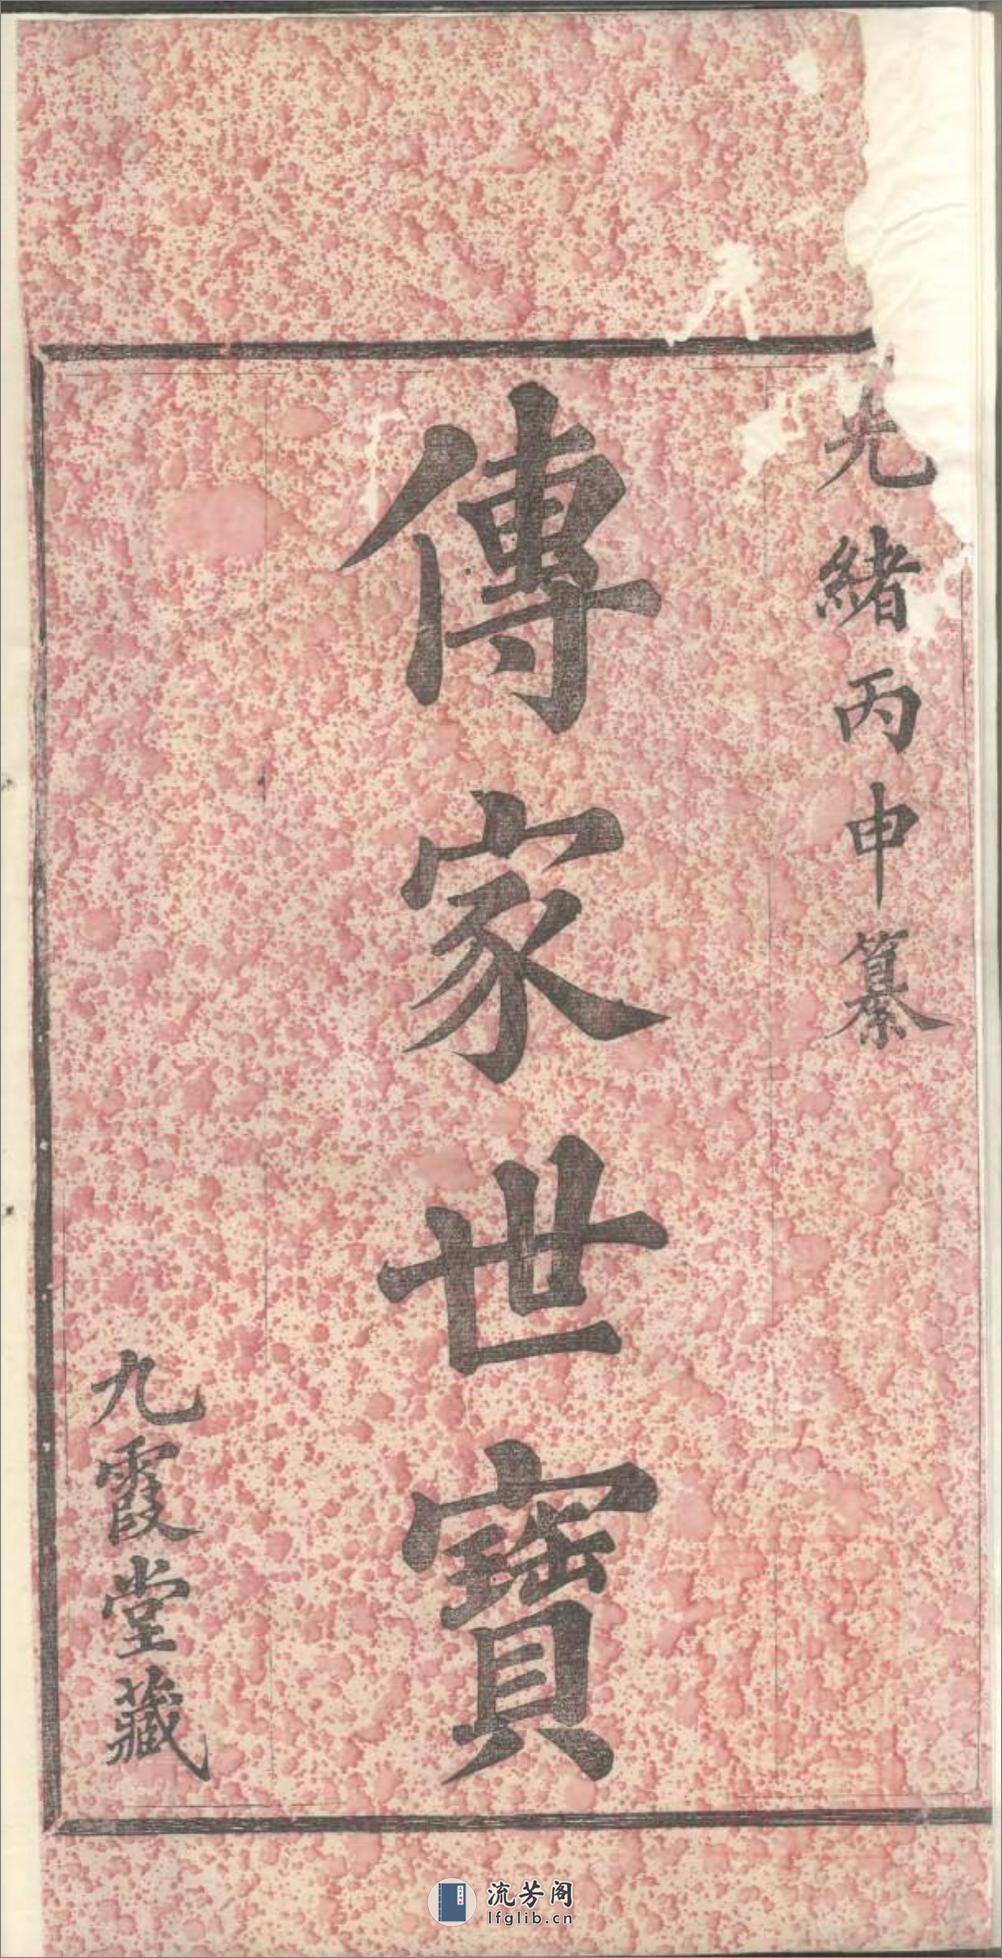 光緒丙申纂
傳家世寶
九霞堂藏
流芳阁
lfglib.cn